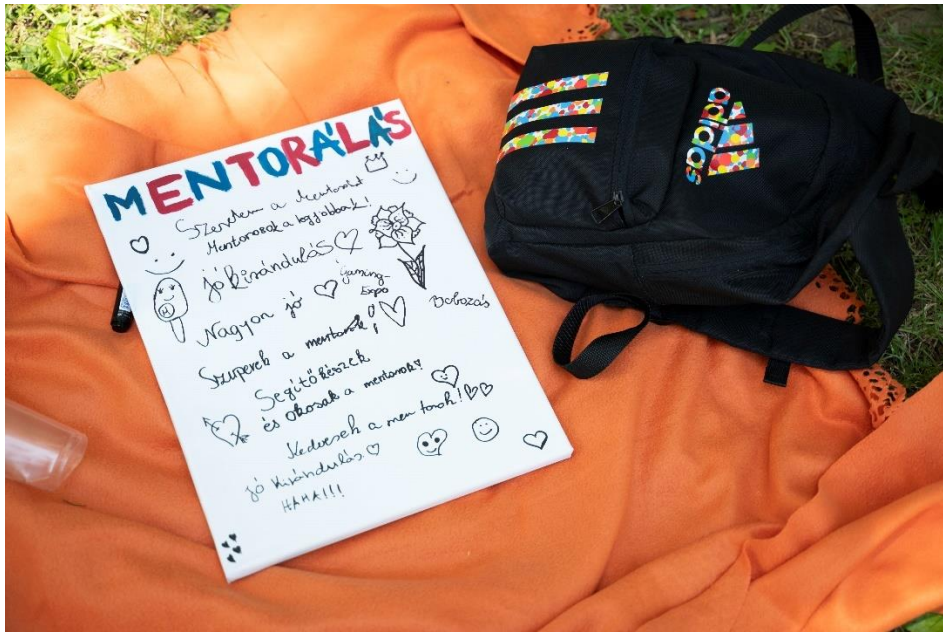 MENTORÁLÁS
Szeretem a Mentorálást
Mentorosok a legjobbak!
jó kirándulás
Gaming-
Expo
Nagyon jó
Dobozás
Szuperek a mentorok!
Segítőkészek
és okosak a mentorok!
Kedvesek a mentorok!
jó kirándulás
HAHA!!!
H
adidas